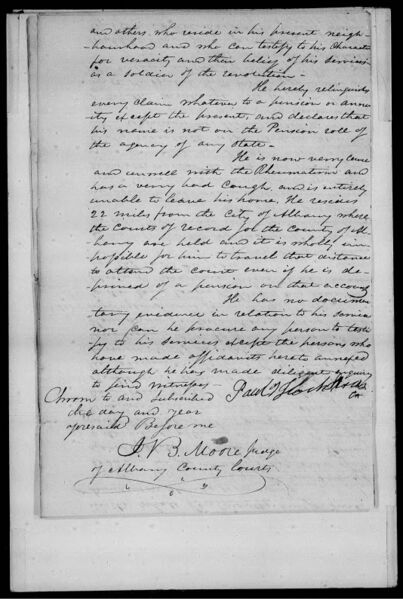 and others, who reside in his present neigh-
bourhood and who can testify to his Character
for veracity and their belief of his Services
as a Soldier of the revolution—
He hereby relinquishes
every claim whatever to a pension or annu-
ity except the present, and declares that
his name is not on the Pension roll of
the agency of any state—
He is now very lame
and unwell with the Rheumatism and
has a verry bad Cough, and is entirely
unable to leave his home. He resides
22 miles from the City of Albany where
the Courts of record for the County of Al-
bany are held and it is wholly im-
possible for him to travel that distance
to attend the court even if he is de-
prived of a pension on that account
He has no documen-
tary evidence in relation to his service
nor can he procure any person to testi-
fy to his services except the persons who
have made affidavits hereto annexed
although he has made diligent enquiry
to find witnesses—
Sworn to and subscribed
the day and year
aforesaid Before me
J. B. Moore Judge
of Albany County Courts